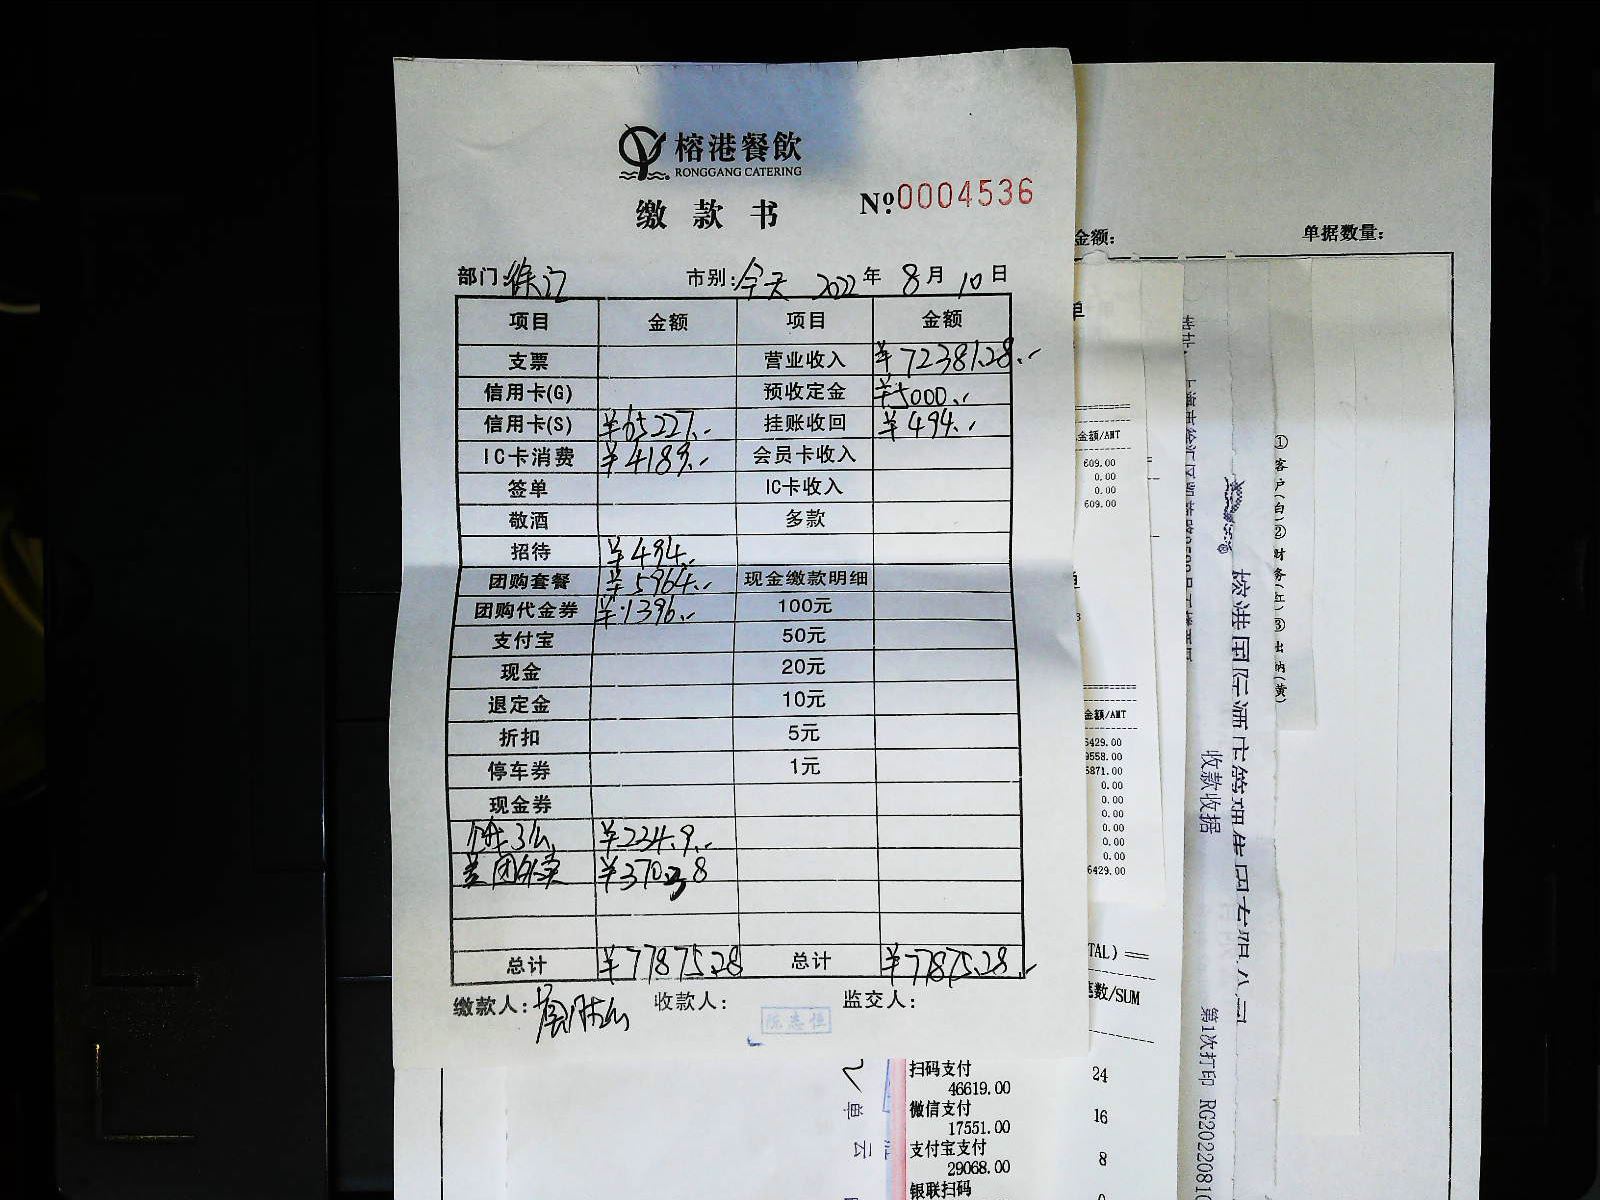 榕港餐飲
RONGGANG CATERING
缴款书 №0004536
部门: 徐汇 市别: 今天 2022年 8月 10日
项目 金额 项目 金额
支票 营业收入 ¥72381.28
信用卡(G) 预收定金 ¥5000
信用卡(S) ¥65227 挂账收回 ¥494
IC卡消费 ¥4189 会员卡收入
签单 IC卡收入
敬酒 多款
招待 ¥494
团购套餐 ¥5964 现金缴款明细
团购代金券 ¥1396 100元
支付宝 50元
现金 20元
退定金 10元
折扣 5元
停车券 1元
现金券
¥234.9
美团外卖 ¥370.38
总计 ¥77875.28 总计 ¥77875.28
缴款人: 收款人: 监交人:
阮志恒
金额: 单据数量:
单
金额/AMT
609.00
0.00
0.00
609.00
金额/AMT
6429.00
9558.00
5871.00
0.00
0.00
0.00
0.00
0.00
0.00
6429.00
TAL) ==
笔数/SUM
扫码支付 24
46619.00
微信支付 16
17551.00
支付宝支付 8
29068.00
银联扫码
①客户(白)②财务(红)③出纳(黄)
收款收据
第1次打印